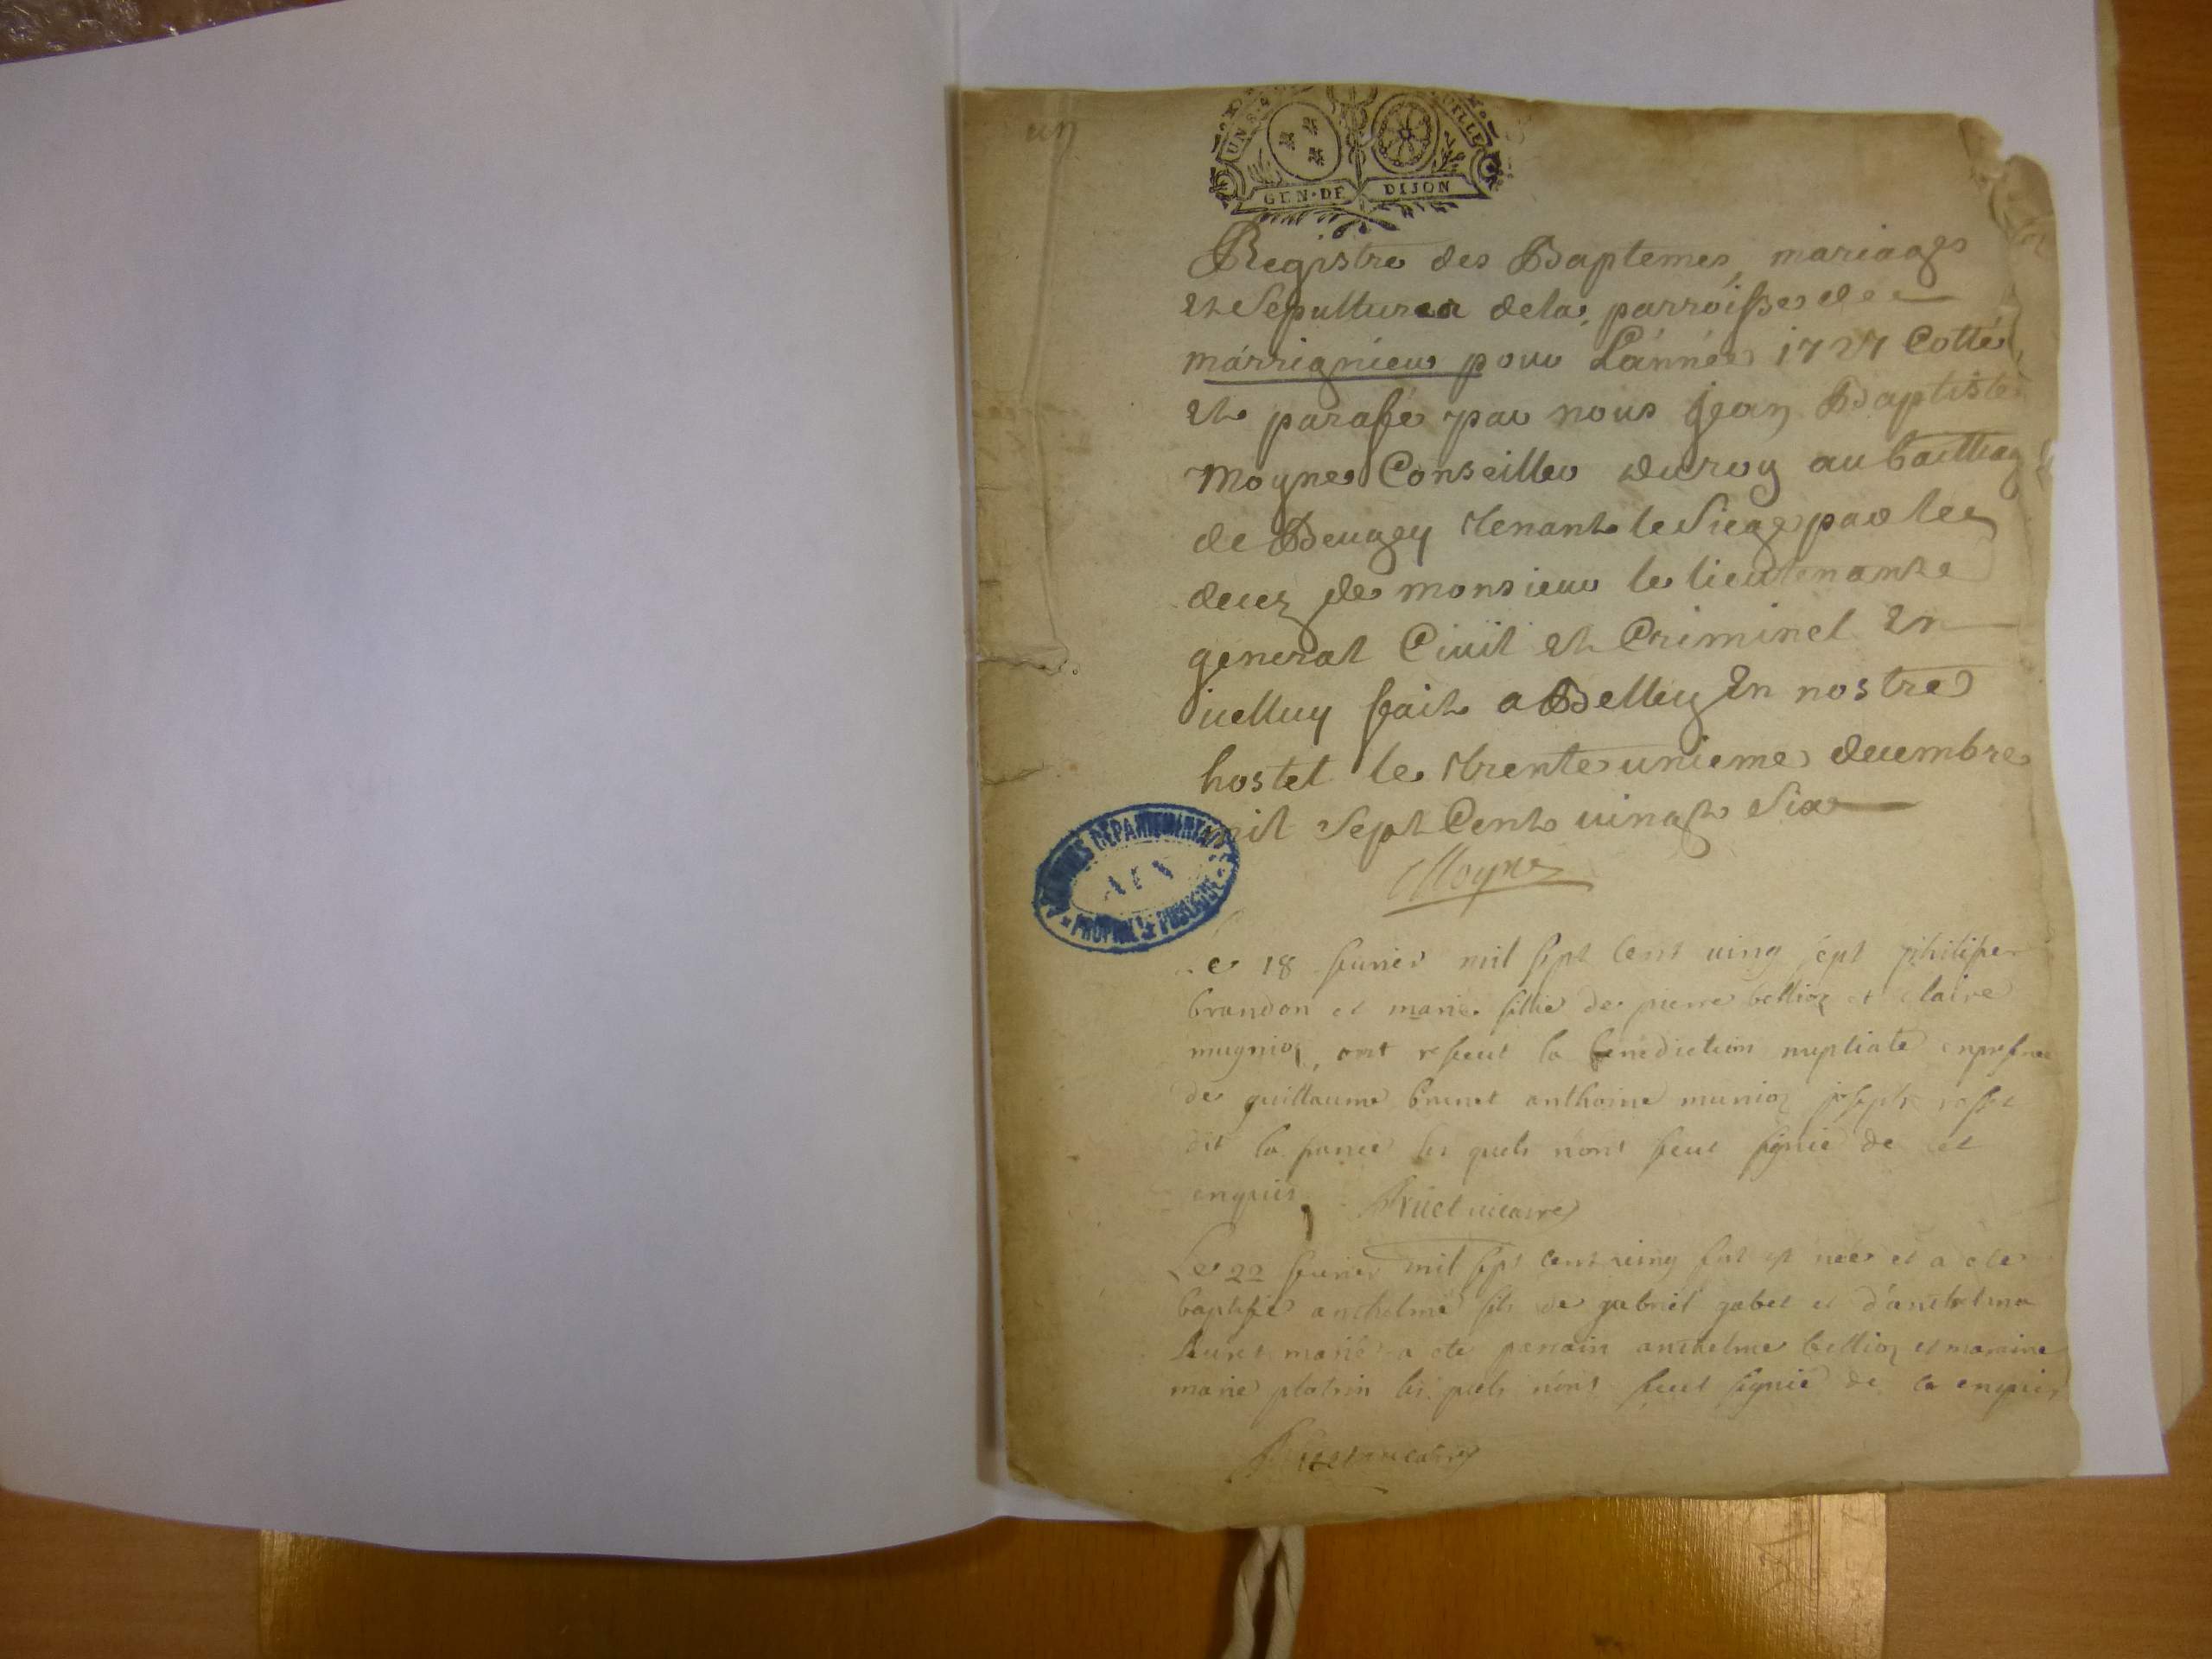 un
UN S. 4 VIELLE
GEN·DE DIJON
Registre des Baptemes, mariages
et Sepultures dela parroisse de
marrignieu pour L'année 1727 Cotté
et parafé par nous Jean Baptiste
Moyne Conseiller du roy au bailliag
de Beugey tenant le Siege par le
decez de monsieur le lieutenant
general Civil et Criminel en
icelluy fait a Belley En nostre
hostel le trente unieme decembre
mil Sept Cent vingt Six
Moyne
ARCHIVES DEPARTEMENTALES
AIN
PROPRIETE PUBLIQUE
Le 18 feurier mil sept cent uing sept philiper
brandon et marie fillie de pierre bellioz et claire
mugnioz, ont resseut la benediction nuptiale en presence
de guillaume brunet anthoine munioz joseph rosset
dit la les quels n'ont seut signié de ce
enquis. Ruet uicaire
Le 22 feurier mil sept cent uing sept est née et a ete
baptisé anthelme fils de gabriel gabet et d'anthelma
marié a ete parrain anthelme bellioz et maraine
marie platrin les quels n'ont seut signié de ce enquis
Ruet uicaire